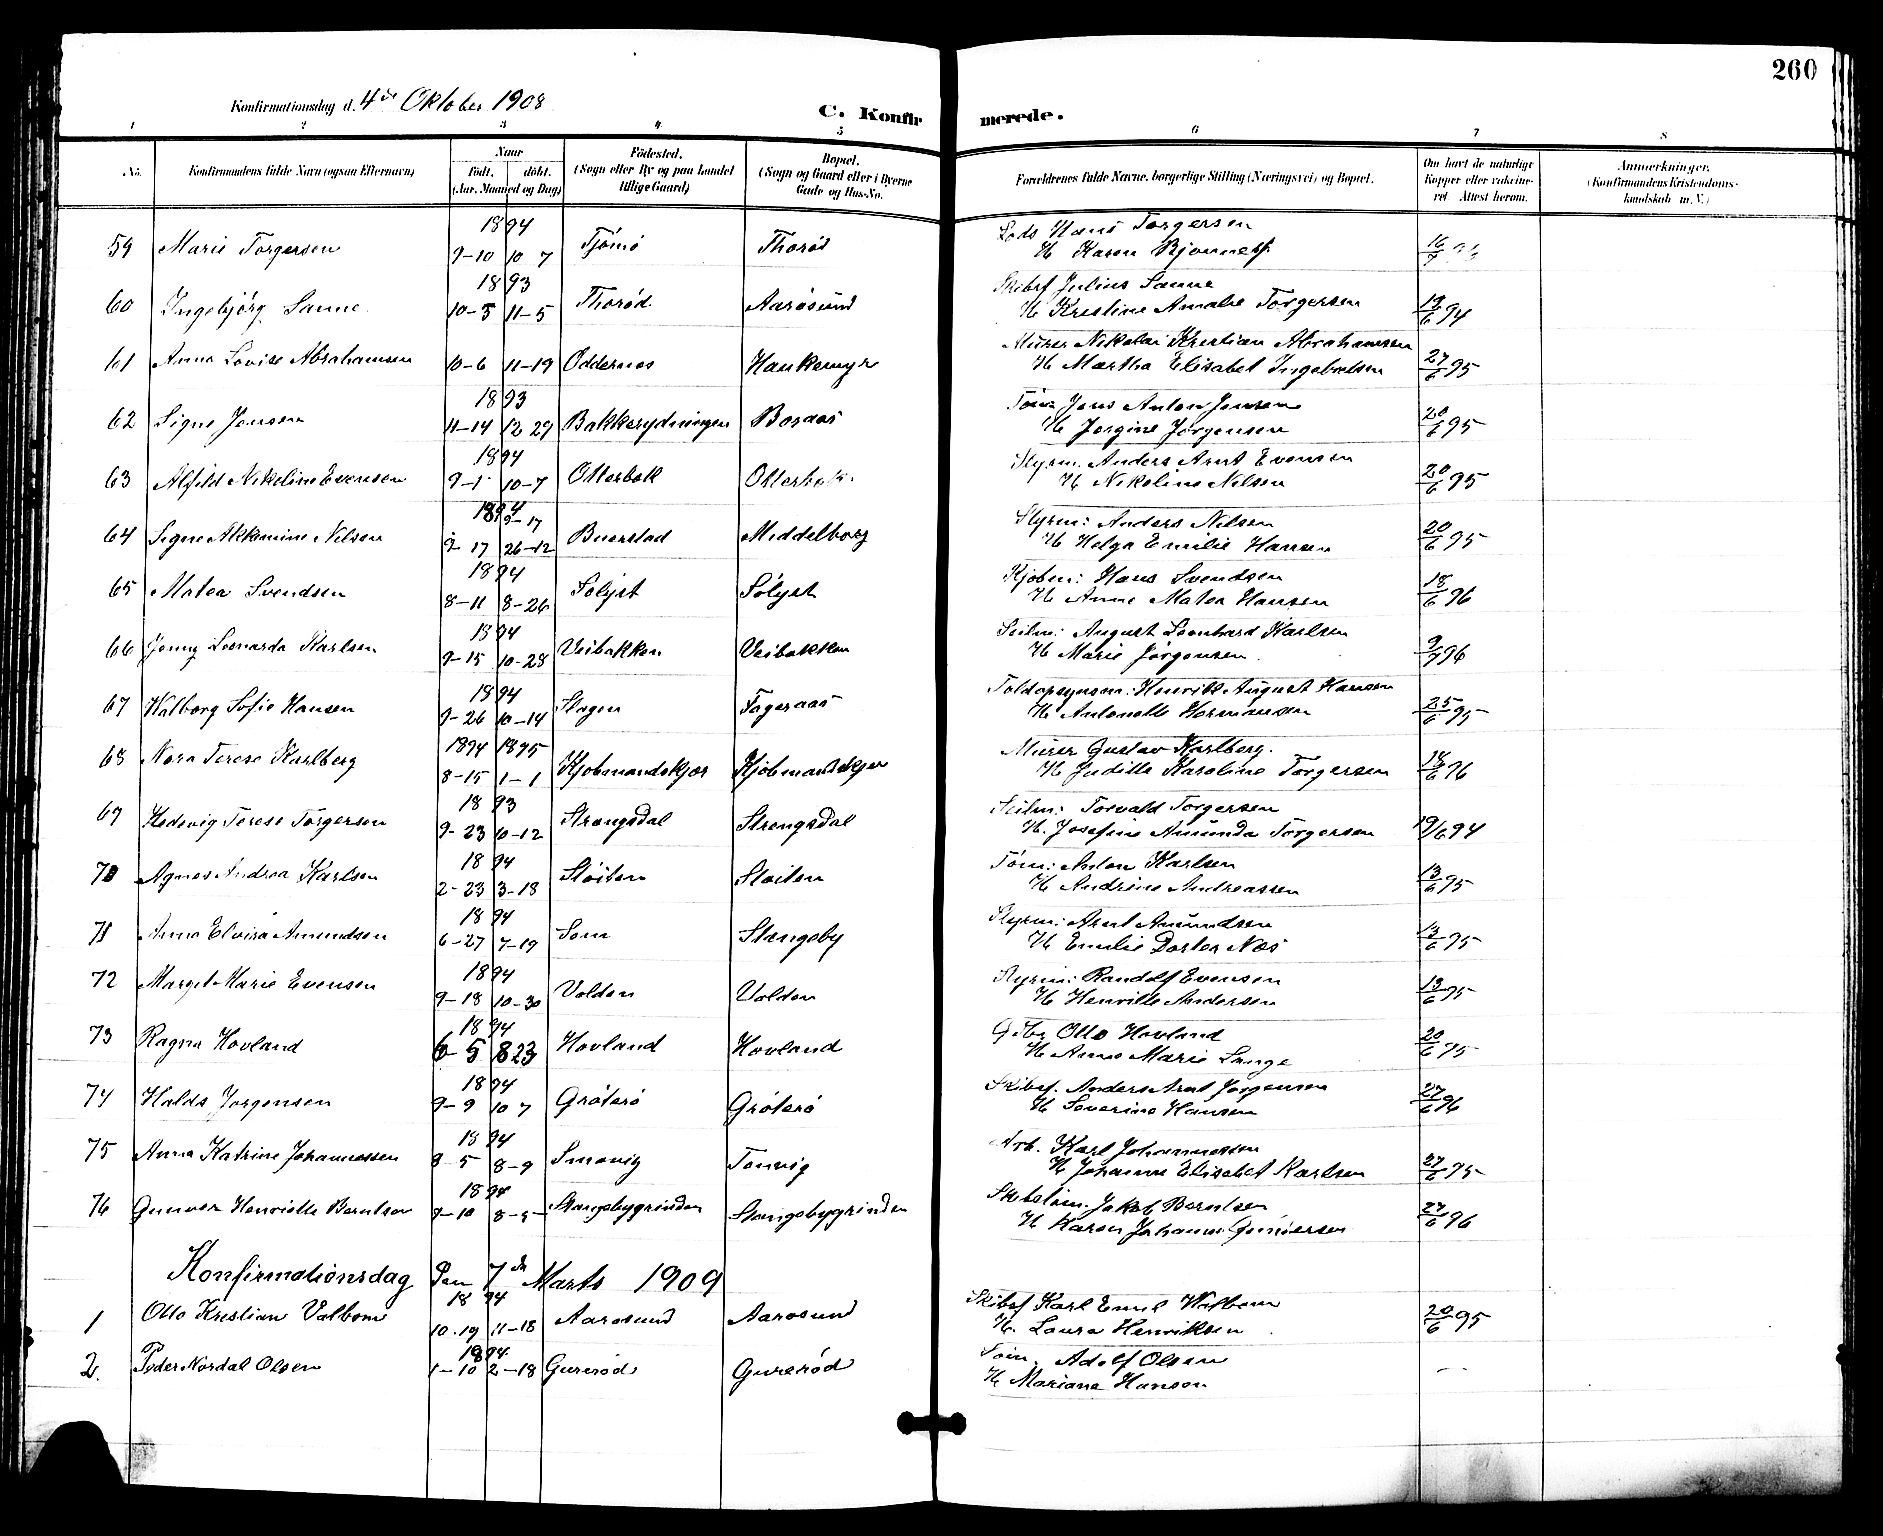 260
Konfirmationsdag d. 4de Oktober 1908
C. Konfirmerede.
1 2 3 4 5 6 7 8
No. Konfirmandens fulde Navn (ogsaa Efternavn) Naar født. døbt. (Aar, Maaned og Dag) Fødested. (Sogn eller By og paa Landet tillige Gaard) Bopæl. (Sogn og Gaard eller i Byerne Gade og Hus-No. Forældrenes fulde Navne, borgerlige Stilling (Næringsvei) og Bopæl. Om havt de naturlige Kopper eller vaccineret. Attest herom. Anmerkninger. (Konfirmandens Kristendomskundskab m. V.)
1894 Lods Hans Torgersen
59 Marie Torgersen 9-10 10 7 Tjömö Thoröd H Karen Bjonness 16/9
1893 Skibsf Julius Sanne
60 Ingebjörg Sanne 10-5 11-5 Thoröd Aarösund H Kristine Amalie Torgersen 13/6 94
Murer Nikolai Kristian Abrahamsen
61 Anna Lovise Abrahamsen 10-6 11-19 Oddernes Haukemyr H Martha Elisabet Ingebretsen 27/6 95
1893 Töm: Jens Anton Jensen
62 Signe Jensen 11-14 12 29 Bakkerydningen Boraas H Jorgine Jörgensen 20/6 95
1894 Styrm. Anders Arnt Evensen
63 Alfild Nikoline Evensen 9-1 10-7 Otterbek Otterbek H Nikoline Nilsen 20/6 95
1894 9-17 Styrm: Anders Nilsen
64 Signe Akkemine Nilsen 9-17 26-12 Buerstad Middelborg H Helga Emilie Hansen 20/6 95
1894 Kjöbm: Hans Svendsen
65 Matea Svendsen 8-11 8-26 Sölyst Sölyst H Anne Matea Hansen 18/6 96
1894 Seilm: August Leonhard Karlsen
66 Jenny Leonarda Karlsen 9-15 10-28 Veibakken Veibakken H Marie Jörgensen 9/9 96
1894 Toldopsynsm: Henrik August Hansen
67 Walborg Sofie Hansen 9-26 10-14 Slagen Fageraas H Antonette Hermansen 25/6 95
1894 1895 Murer Gustav Karlberg.
68 Nora Terese Karlberg 8-15 1-1 Kjöbmandskjær Kjöbmandskjær H Judithe Karoline Torgersen 18/6 96
1893 Seilm: Torvald Torgersen
69 Hedevig Terese Torgersen 9-23 10-12 Strengsdal Strengsdal H. Josefine Amunda Torgersen 19/6 94
1894 Töm: Anton Karlsen
70 Agnes Andrea Karlsen 2-23 3-18 Stöiten Stöiten H Andrine Andreassen 13/6 95
1894 Styrm: Arnt Amundsen
71 Anna Elvira Amundsen 6-27 7-19 Som Stangeby H Emilie Dortea Næs 13/6 95
1894 Styrm: Randolf Evensen
72 Margit Marie Evensen 9-18 10-30 Volden Volden H Henritte Andersen 13/6 95
1894 Gdbr Otto Hovland
73 Ragna Hovland 6-5 8 23 Hovland Hovland H Anne Marie Lunge 20/6 95
1894 Skibsf. Anders Arnt Jörgensen
74 Haldis Jorgensen 9-9 10 7 Gröterö Gröterö H Severine Hansen 27/6 96
1894 Arb. Karl Johannessen
75 Anna Katrine Johannessen 8-5 8-9 Smövig Tenvig H Johanne Elisabet Karlsen 27/6 95
1894 Skibstöm. Jakob Berntsen
76 Gunvor Henriette Berntsen 7-10 8-5 Stangebygrinden Stangebygrinden H Karen Johanne Gundersen 27/6 96
Konfirmationsdag Den 7de Marts 1909
1894 Skibsf Karl Emil Valbom
1 Otto Kristian Valbom 10.19 11-18 Aarosund Aarosund H. Laura Henriksen 20/6 95
1894 Töm. Adolf Olsen
2. Peder Nordal Olsen 1-10 2-18 Gureröd Gureröd H Mariane Hansen